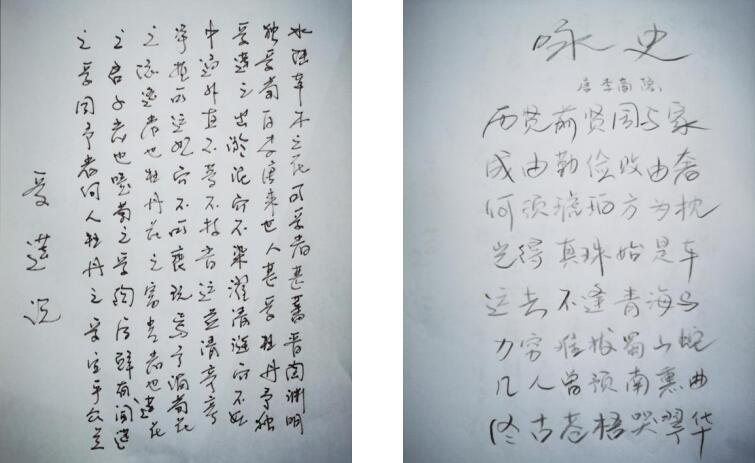 水陆草木之花可爱者甚蕃晋陶渊明
独爱菊自李唐来世人甚爱牡丹予独
爱莲之出淤泥而不染濯清涟而不妖
中通外直不蔓不枝香远益清亭亭
净植可远观而不可亵玩焉予谓菊花
之隐逸者也牡丹花之富贵者也莲花
之君子者也噫菊之爱陶后鲜有闻莲
之爱同予者何人牡丹之爱宜乎众矣
爱莲说
咏史
唐李商隐
历览前贤国与家
成由勤俭败由奢
何须琥珀方为枕
岂得真珠始是车
运去不逢青海马
力穷难拔蜀山蛇
几人曾预南熏曲
终古苍梧哭翠华